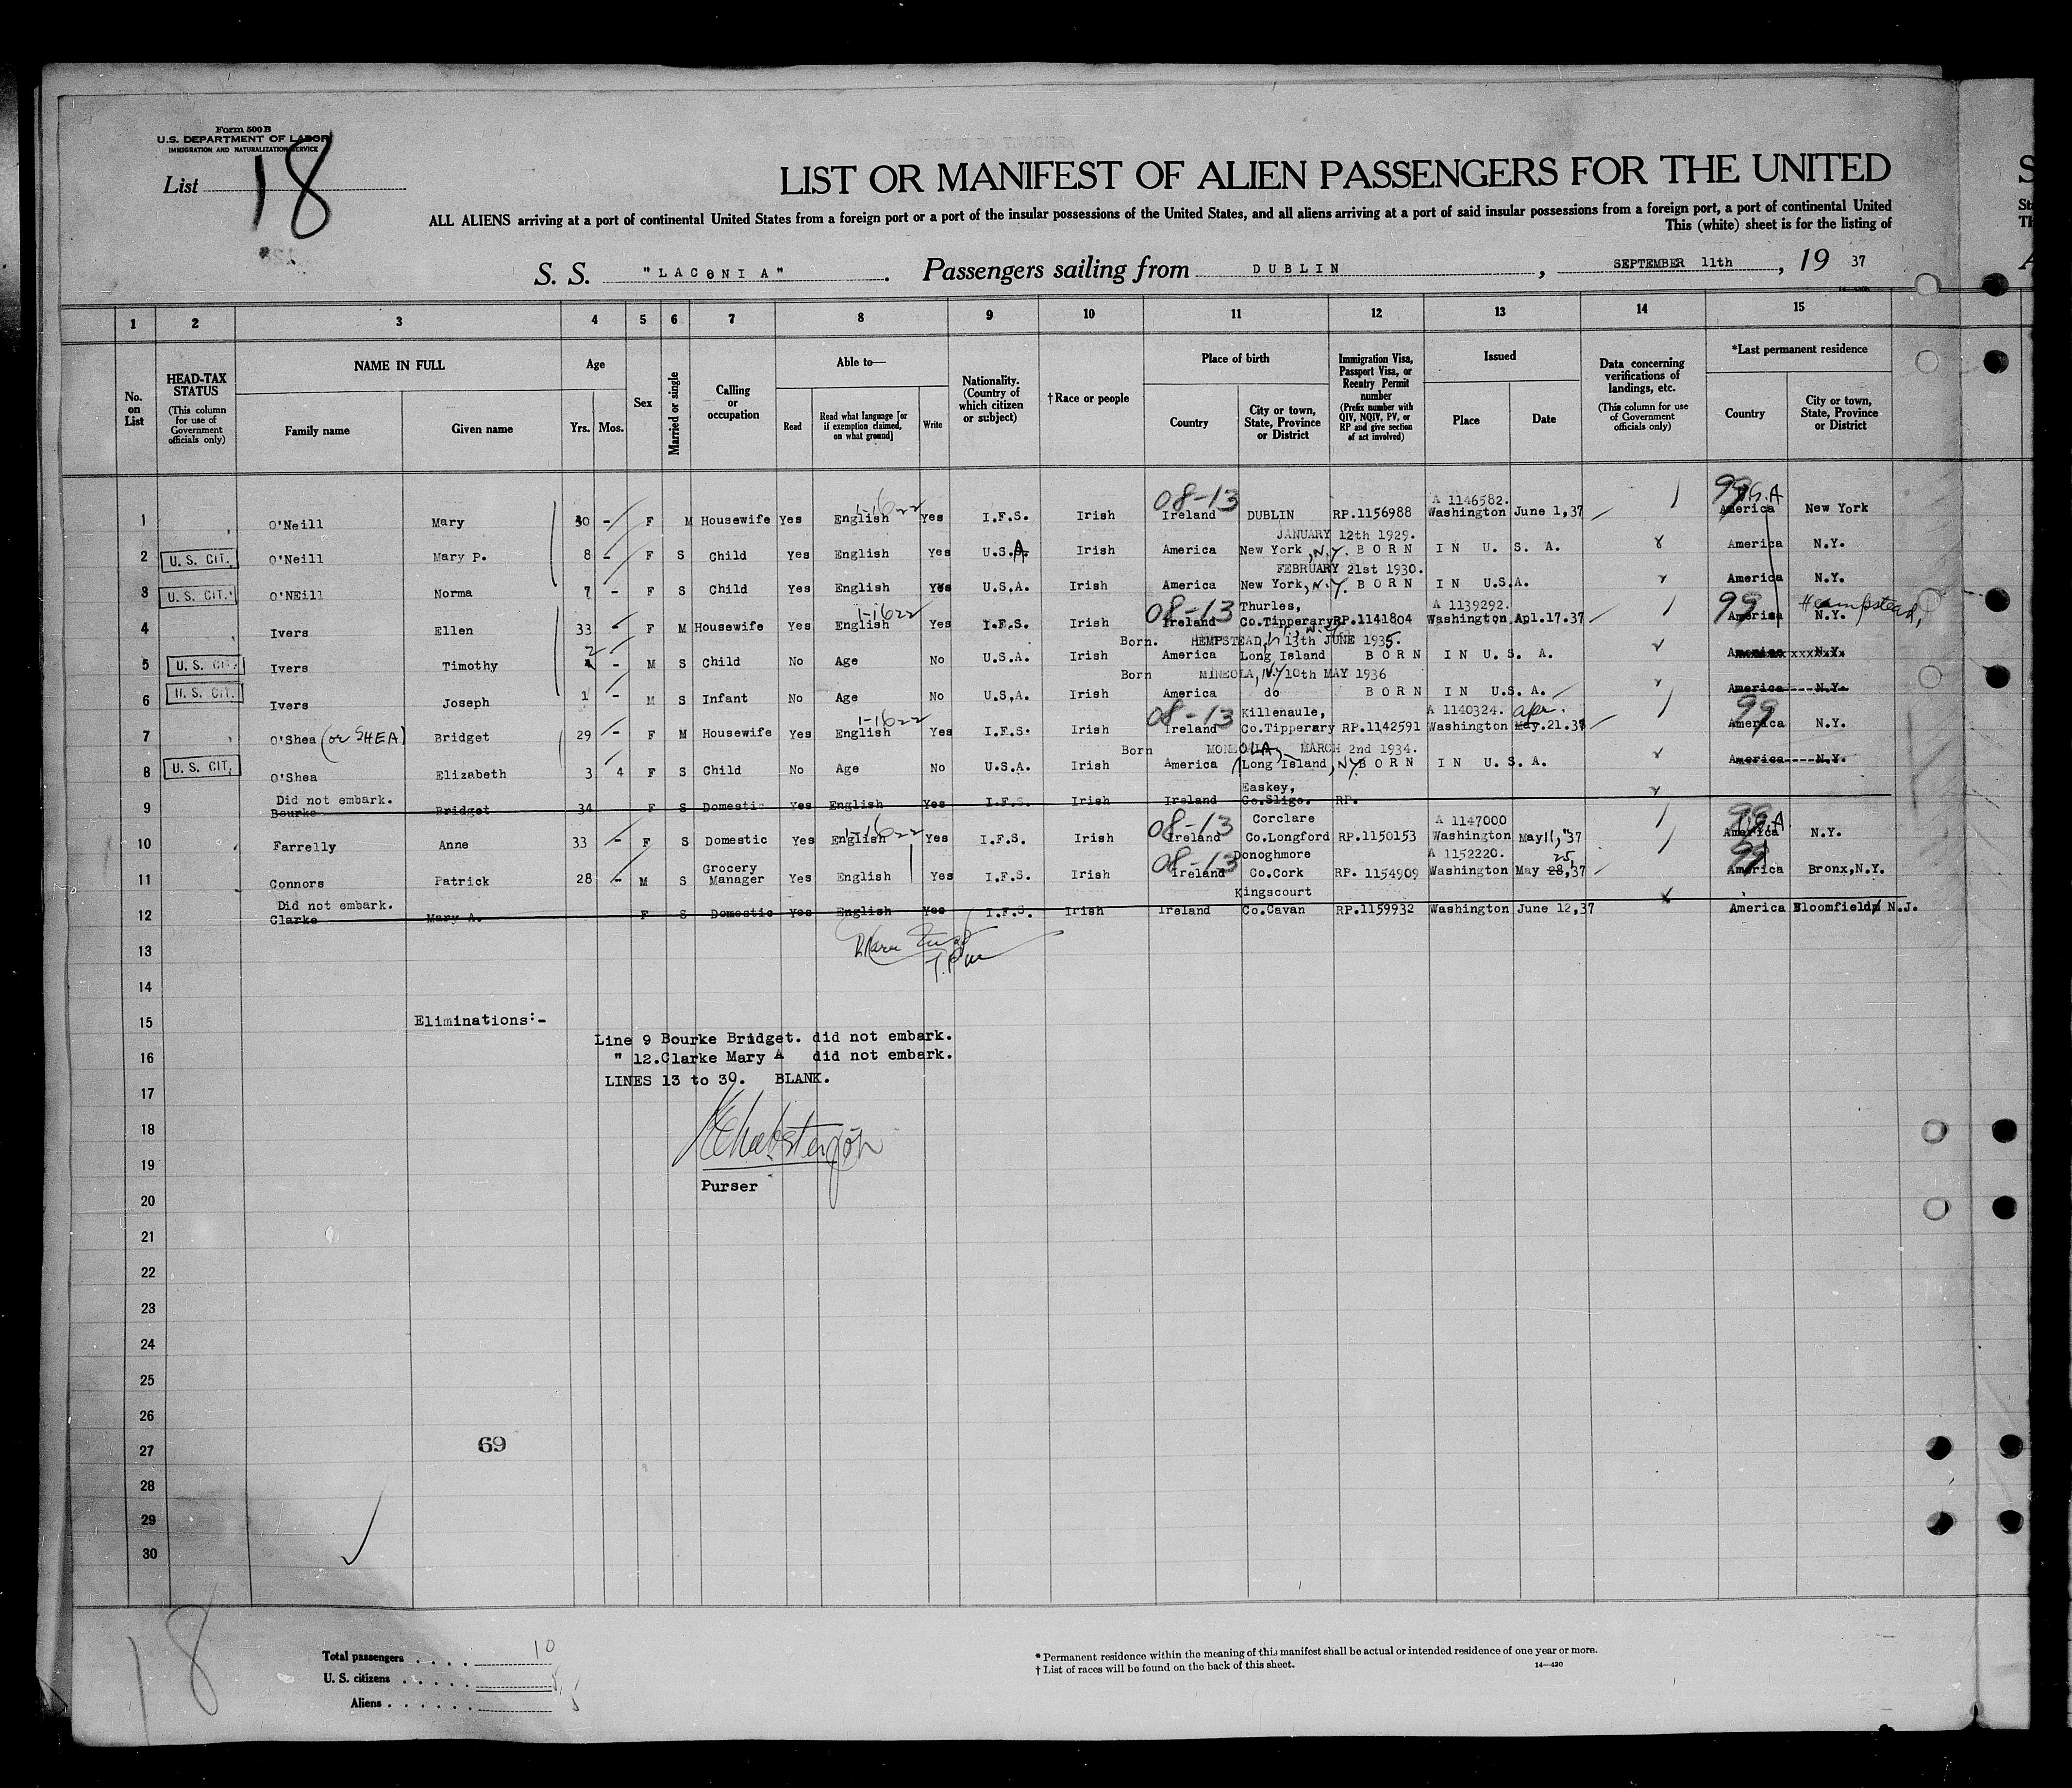 Form 500 B
U.S. DEPARTMENT OF LABOR
IMMIGRATION AND NATURALIZATION SERVICE
List 18
LIST OR MANIFEST OF ALIEN PASSENGERS FOR THE UNITED
ALL ALIENS arriving at a port of continental United States from a foreign port or a port of the insular possessions of the United States, and all aliens arriving at a port of said insular possessions from a foreign port, a port of continental United
This (white) sheet is for the listing of
S. S. "LACONIA". Passengers sailing from DUBLIN, SEPTEMBER 11th, 19 37
1 2 3 4 5 6 7 8 9 10 11 12 13 14 15
No. on List
HEAD-TAX STATUS (This column for use of Government officials only)
NAME IN FULL
Family name Given name
Age
Yrs. Mos.
Sex
Married or single
Calling or occupation
Able to—
Read Read what language [or if exemption claimed, on what ground] Write
Nationality. (Country of which citizen or subject)
†Race or people
Place of birth
Country City or town, State, Province or District
Immigration Visa, Passport Visa, or Reentry Permit number (Prefix number with QIV, NQIV, PV, or RP and give section of act involved)
Issued
Place Date
Data concerning verifications of landings, etc. (This column for use of Government officials only)
*Last permanent residence
Country City or town, State, Province or District
1-1622 08-13 A 1146582. 99 U.S.A
1 O'Neill Mary 30 - F M Housewife Yes English Yes I.F.S. Irish Ireland DUBLIN RP.1156988 Washington June 1,37 America New York
JANUARY 12th 1929.
2 U. S. CIT. O'Neill Mary P. 8 - F S Child Yes English Yes U.S.A. Irish America New York, N.Y. BORN IN U. S. A. America N.Y.
FEBRUARY 21st 1930.
3 U. S. CIT. O'NEill Norma 7 - F S Child Yes English Yes U.S.A. Irish America New York, N.Y. BORN IN U.S.A. America N.Y.
1-1622 08-13 Thurles, A 1139292. 99 Hempstead,
4 Ivers Ellen 33 - F M Housewife Yes English Yes I.F.S. Irish Ireland Co.Tipperary RP.1141804 Washington, Apl.17.37 America N.Y.
Born. HEMPSTEAD, N.Y. 13th JUNE 1935.
5 U. S. CIT. Ivers Timothy 2 - M S Child No Age No U.S.A. Irish America Long Island BORN IN U. S. A. America N.Y.
Born MINEOLA, N.Y. 10th MAY 1936
6 U. S. CIT. Ivers Joseph 1 - M S Infant No Age No U.S.A. Irish America do BORN IN U.S.A. America----N.Y.
1-1622 08-13 Killenaule, A 1140324. Apr. 99
7 O'Shea (or SHEA) Bridget 29 - F M Housewife Yes English Yes I.F.S. Irish Ireland Co.Tipperary RP.1142591 Washington May.21.37 America N.Y.
Born MONEOLA, MARCH 2nd 1934.
8 U. S. CIT. O'Shea Elizabeth 3 4 F S Child No Age No U.S.A. Irish America Long Island, NY BORN IN U. S. A. America----N.Y.
Did not embark. Easkey,
9 Bourke Bridget 34 F S Domestic Yes English Yes I.F.S. Irish Ireland Co.Sligo. RP.
1-1622 08-13 Corclare A 1147000 99 U.S.A
10 Farrelly Anne 33 - F S Domestic Yes English Yes I.F.S. Irish Ireland Co.Longford RP.1150153 Washington May 11, 37 America N.Y.
Grocery 08-13 Donoghmore A 1152220. 25, 99
11 Connors Patrick 28 - M S Manager Yes English Yes I.F.S. Irish Ireland Co.Cork RP. 1154909 Washington May 28,37 America Bronx,N.Y.
Did not embark. Kingscourt
12 Clarke Mary A. F S Domestic Yes English Yes I.F.S. Irish Ireland Co.Cavan RP.1159932 Washington June 12,37 America Bloomfield N.J.
13
14
15 Eliminations:-
Line 9 Bourke Bridget. did not embark.
16 " 12.Clarke Mary A did not embark.
LINES 13 to 30. BLANK.
17
18
19
Purser
20
21
22
23
24
25
26
69
27
28
29
30
18
Total passengers . . . . 10
U. S. citizens . . . . . . 5
Aliens . . . . . . . 5
* Permanent residence within the meaning of this manifest shall be actual or intended residence of one year or more.
† List of races will be found on the back of this sheet.
14—420